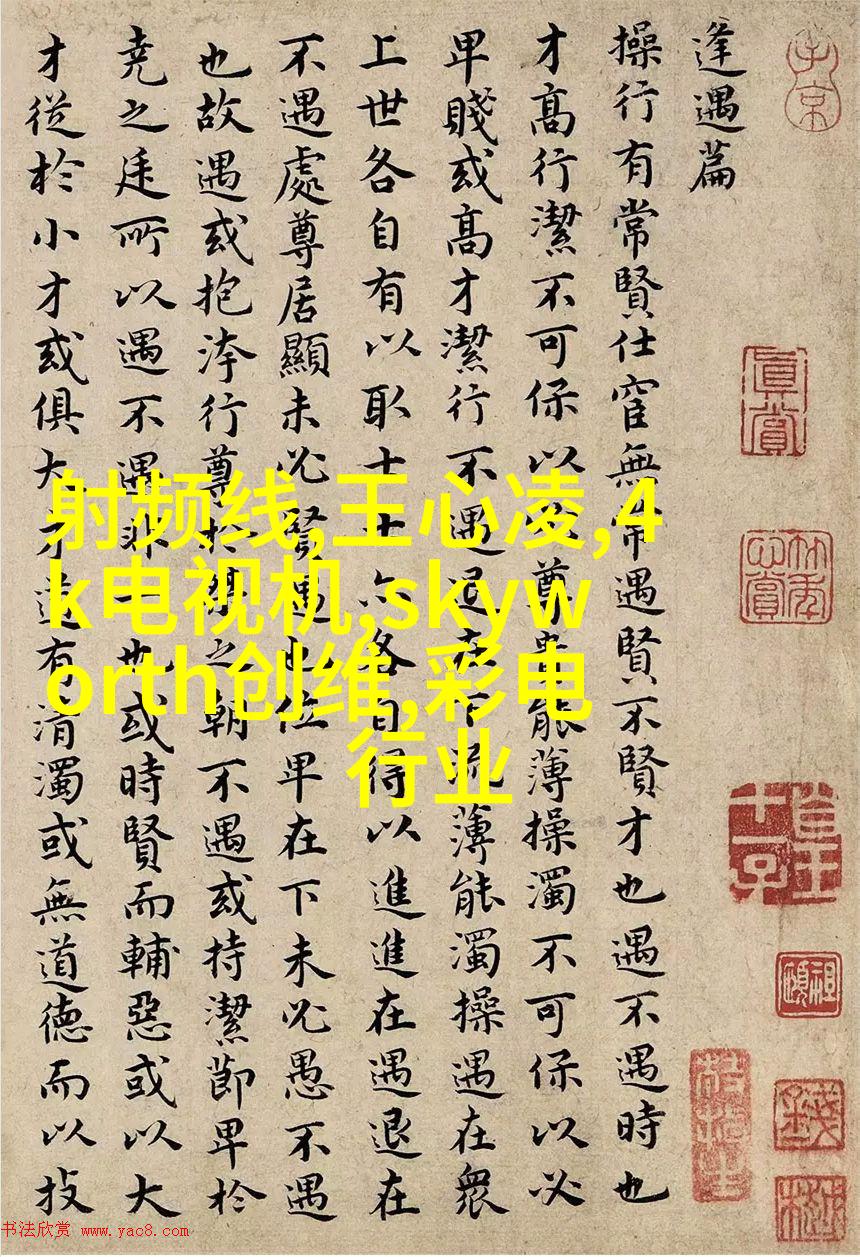 逢遇篇
操行有常賢仕宦無常遇賢不賢才也遇不遇時也
才高行潔不可保以必尊貴能薄操濁不可保以必
卑賤或高才潔行不遇退在下流薄能濁操遇在衆
上世各自有以取士士亦各自得以進進在遇退在
不遇處尊居顯未必賢遇也位卑在下未必愚不遇
也故遇或抱洿行尊於桀之朝不遇或持潔節卑於
堯之廷所以遇不遇非一也或時賢而輔惡或以大
才從於小才或俱大才道有清濁或無道德而以技
射频线,王心凌,4
k电视机,skyw
orth创维,彩电
行业
子京
真賞
书法欣赏 www.yac8.com